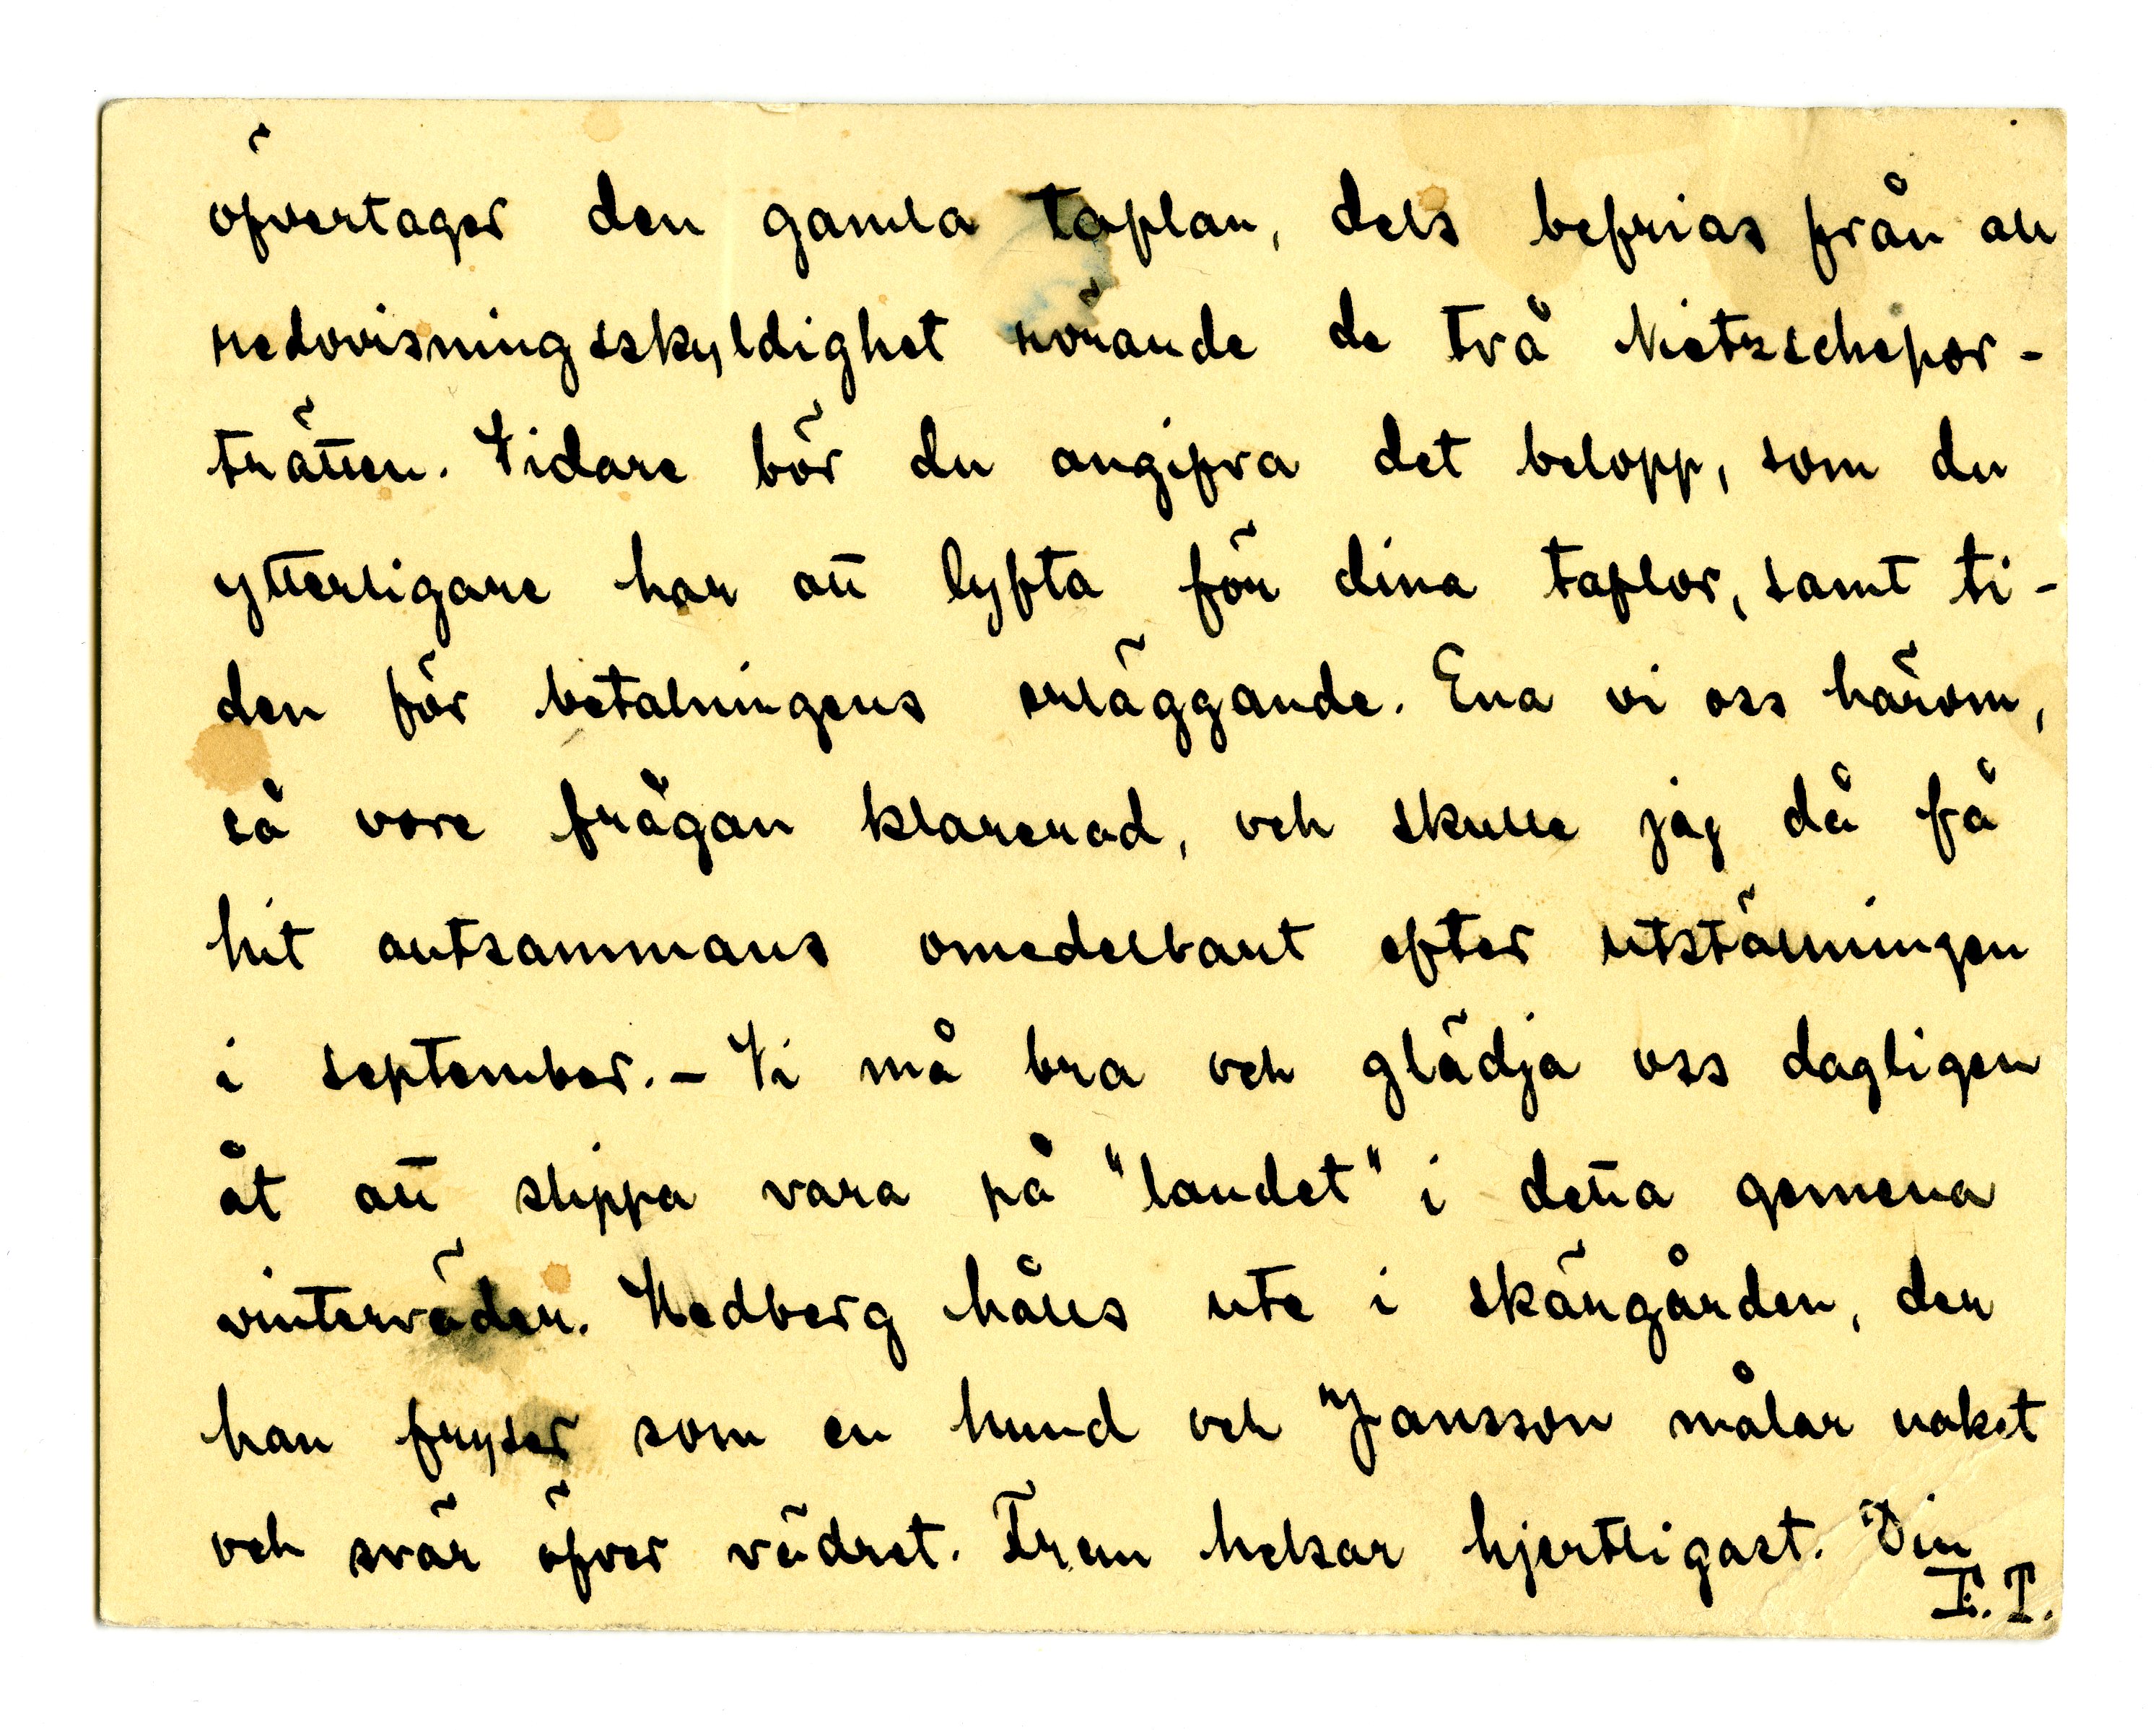 öfvertager den gamla taflan, dels befrias från all
redovisningsskyldighet rörande de två Nietzschepor-
trätten. Vidare bör du angifva det belopp, som du
ytterligare har att lyfta för dina taflor, samt ti-
den för betalningens erläggande. Ena vi oss härom,
så vore frågan klarerad, och skulle jag då få
hit alltsammans omedelbart efter utställningen
i september. – Vi må bra och glädja oss dagligen
åt att slippa vara på "landet" i detta gemena
vinterväder. Hedberg hålles ute i skärgården, der
han fryser som en hund och Jansson målar naket
och svär öfver vädret. Frun helsar hjertligast. Din
E.T.